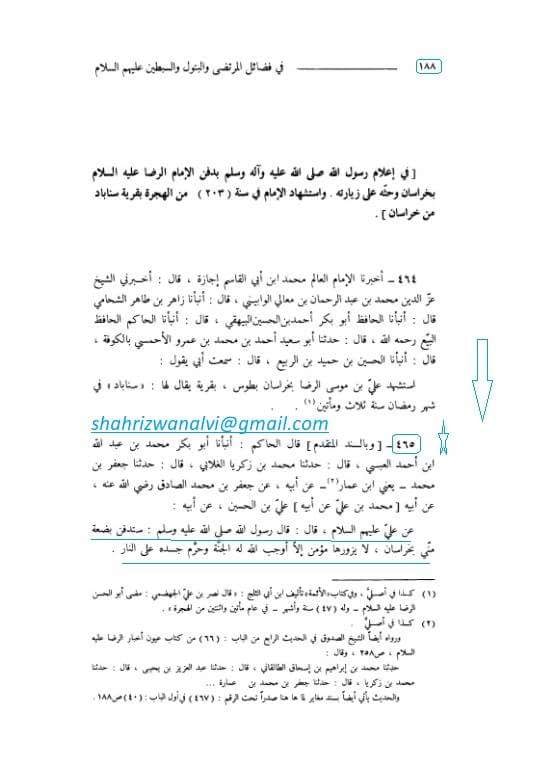 ١٨٨ ـــــــــــ في فضائل المرتضى والبتول والسبطين عليهم السلام
[ في إعلام رسول الله صلى الله عليه وآله وسلم بدفن الإمام الرضا عليه السلام
بخراسان وحثّه على زيارته . واستشهاد الإمام في سنة ( ٢٠٣ ) من الهجرة بقرية سناباد
من خراسان ] .
٤٦٤ ـ أخبرنا الإمام العالم محمد ابن أبي القاسم إجازة ، قال : أخبرني الشيخ
عزّ الدين محمد بن عبد الرحمان بن معالي الوابيني ، قال : أنبأنا زاهر بن طاهر الشحامي
قال : أنبأنا الحافظ أبو بكر أحمدبن‌الحسين‌البيهقي ، قال : أنبأنا الحاكم الحافظ
البيّع رحمه الله ، قال : حدثنا أبو سعيد أحمد بن محمد بن عمرو الأحمسي بالكوفة ،
قال : أنبأنا الحسين بن حميد بن الربيع ، قال : سمعت أبي يقول :
استشهد عليّ بن موسى الرضا بخراسان بطوس ، بقرية يقال لها : « سناباد » في
شهر رمضان سنة ثلاث ومأتين (١) .
shahrizwanalvi@gmail.com
٤٦٥ ـ [ وبالسند المتقدم ] قال الحاكم : أنبأنا أبو بكر محمد بن عبد الله
ابن أحمد العبسي ، قال : حدثنا محمد بن زكريا الغلابي ، قال : حدثنا جعفر بن
محمد ــ يعني ابن عمار (٢) ــ عن أبيه ، عن جعفر بن محمد الصادق رضي الله عنه ،
عن أبيه [ محمد بن عليّ عن أبيه ] عليّ بن الحسين ، عن أبيه :
عن عليّ عليهم السلام ، قال : قال رسول الله صلى الله عليه وسلم : ستدفن بضعة
منّي بخراسان ، لا يزورها مؤمن إلاّ أوجب الله له الجنّة وحرّم جسده على النار .
(١) كذا في أصليّ ، وفي‌كتاب «الأئمة» تأليف ابن أبي الثلج : « قال نصر بن عليّ الجهضمي : مضى أبو الحسن
الرضا عليه السلام ــ وله (٤٧) سنة وأشهر ــ في عام مأتين واثنتين من الهجرة » .
(٢) كذا في أصليّ .
ورواه أيضاً الشيخ الصدوق في الحديث الرابع من الباب : (٦٦) من كتاب عيون أخبار الرضا عليه
السلام ، ص٢٥٨ ، وقال :
حدثنا محمد بن إبراهيم بن إسحاق الطالقاني ، قال : حدثنا عبد العزيز بن يحيى ، قال : حدثنا
محمد بن زكريا ، قال : حدثنا جعفر بن محمد بن عمارة ...
والحديث يأتي أيضاً بسند مغاير لما ها هنا صدراً تحت الرقم : (٤٦٧) في أول الباب : (٤٠) ص١٨٨ .